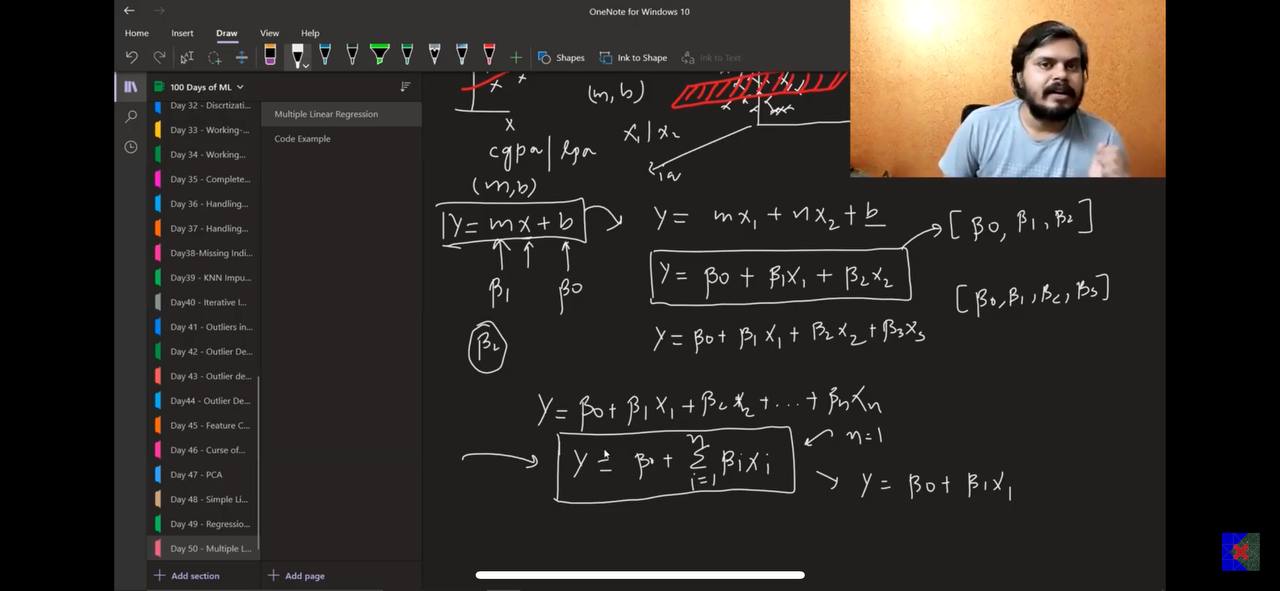 OneNote for Windows 10
Home Insert Draw View Help
Shapes Ink to Shape Ink to Text
100 Days of ML
Day 32 - Discrtizati...
Day 33 - Working-...
Day 34 - Working...
Day 35 - Complete...
Day 36 - Handling...
Day 37 - Handling...
Day38-Missing Indi...
Day39 - KNN Impu...
Day40 - Iterative I...
Day 41 - Outliers in...
Day 42 - Outlier De...
Day 43 - Outlier de...
Day44 - Outlier De...
Day 45 - Feature C...
Day 46 - Curse of...
Day 47 - PCA
Day 48 - Simple Li...
Day 49 - Regressio...
Day 50 - Multiple L...
Add section
Multiple Linear Regression
Code Example
Add page
x x
x
(m, b)
x₁ | x₂
cgpa | lpa
(m,b)
Y = mx + b
β₁ β0
β₂
Y = mx₁ + nx₂ + b
Y = β0 + β₁x₁ + β₂x₂
[β0, β₁, β₂]
Y = β0 + β₁x₁ + β₂x₂ + β₃x₃
[β0, β₁, β₂, β₃]
Y = β0 + β₁x₁ + β₂x₂ + ... + βnxn
Y = β0 + n Σ i=1 βixi
n=1
Y = β0 + β₁x₁